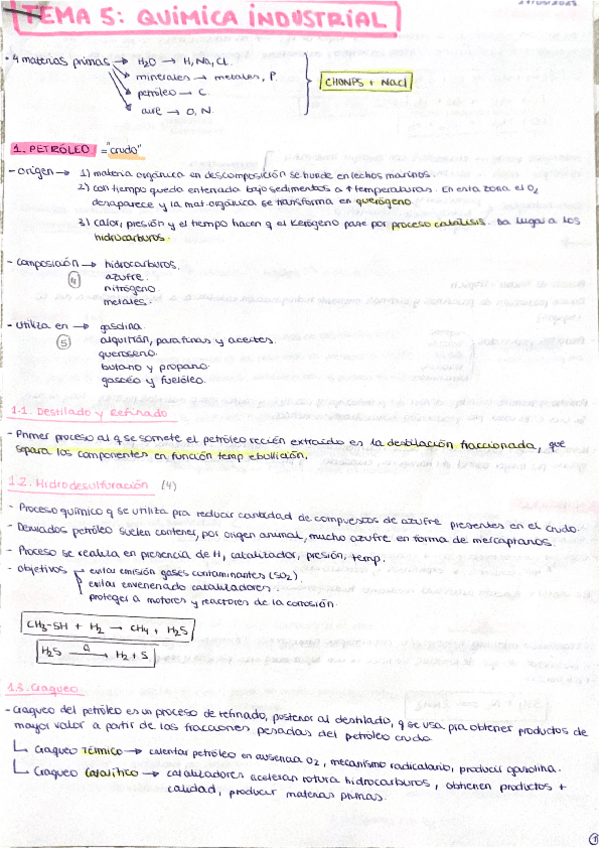 TEMA 5: QUÍMICA INDUSTRIAL
· 4 materias primas → H2O → H, Na, Cl.
→ minerales → metales, P.
→ petróleo → C.
→ aire → O, N.
CHONPS + NaCl
1. PETRÓLEO = "crudo"
- origen → 1) materia orgánica en descomposición se hunde en lechos marinos.
2) con tiempo queda enterrada bajo sedimentos a ↑ temperaturas. En esta zona el O2
desaparece y la mat. orgánica se transforma en querógeno.
3) calor, presión y el tiempo hacen q el kerógeno pase por proceso catálisis. Da lugar a los
hidrocarburos.
- composición → hidrocarburos.
(4) azufre.
nitrógeno.
metales.
- utiliza en → gasolina.
(5) alquitrán, parafinas y aceites.
queroseno.
butano y propano.
gasoéo y fuelóleo.
1.1. Destilado y Refinado
- Primer proceso al q se somete el petróleo recién extraído es la destilación fraccionada, que
separa los componentes en función temp ebullición.
1.2. Hidrodesulfuración (4)
- Proceso químico q se utiliza pra reducir cantidad de compuestos de azufre presentes en el crudo.
- Derivados petróleo suelen contener, por origen animal, mucho azufre en forma de mercaptanos.
- Proceso se realiza en presencia de H, catalizador, presión, temp.
- objetivos → evitar emisión gases contaminantes (SO2)
evitar envenenado catalizadores.
proteger a motores y reactores de la corrosión.
CH3-SH + H2 → CH4 + H2S
H2S →Q H2 + S
1.3. Craqueo
- Craqueo del petróleo es un proceso de refinado, posterior al destilado, q se usa pra obtener productos de
mayor valor a partir de las fracciones pesadas del petróleo crudo.
↳ Craqueo Térmico → calentar petróleo en ausencia O2, mecanismo radicalario, producir gasolina.
↳ Craqueo Catalítico → catalizadores aceleran rotura hidrocarburos, obtienen productos +
calidad, producir materias primas.
1